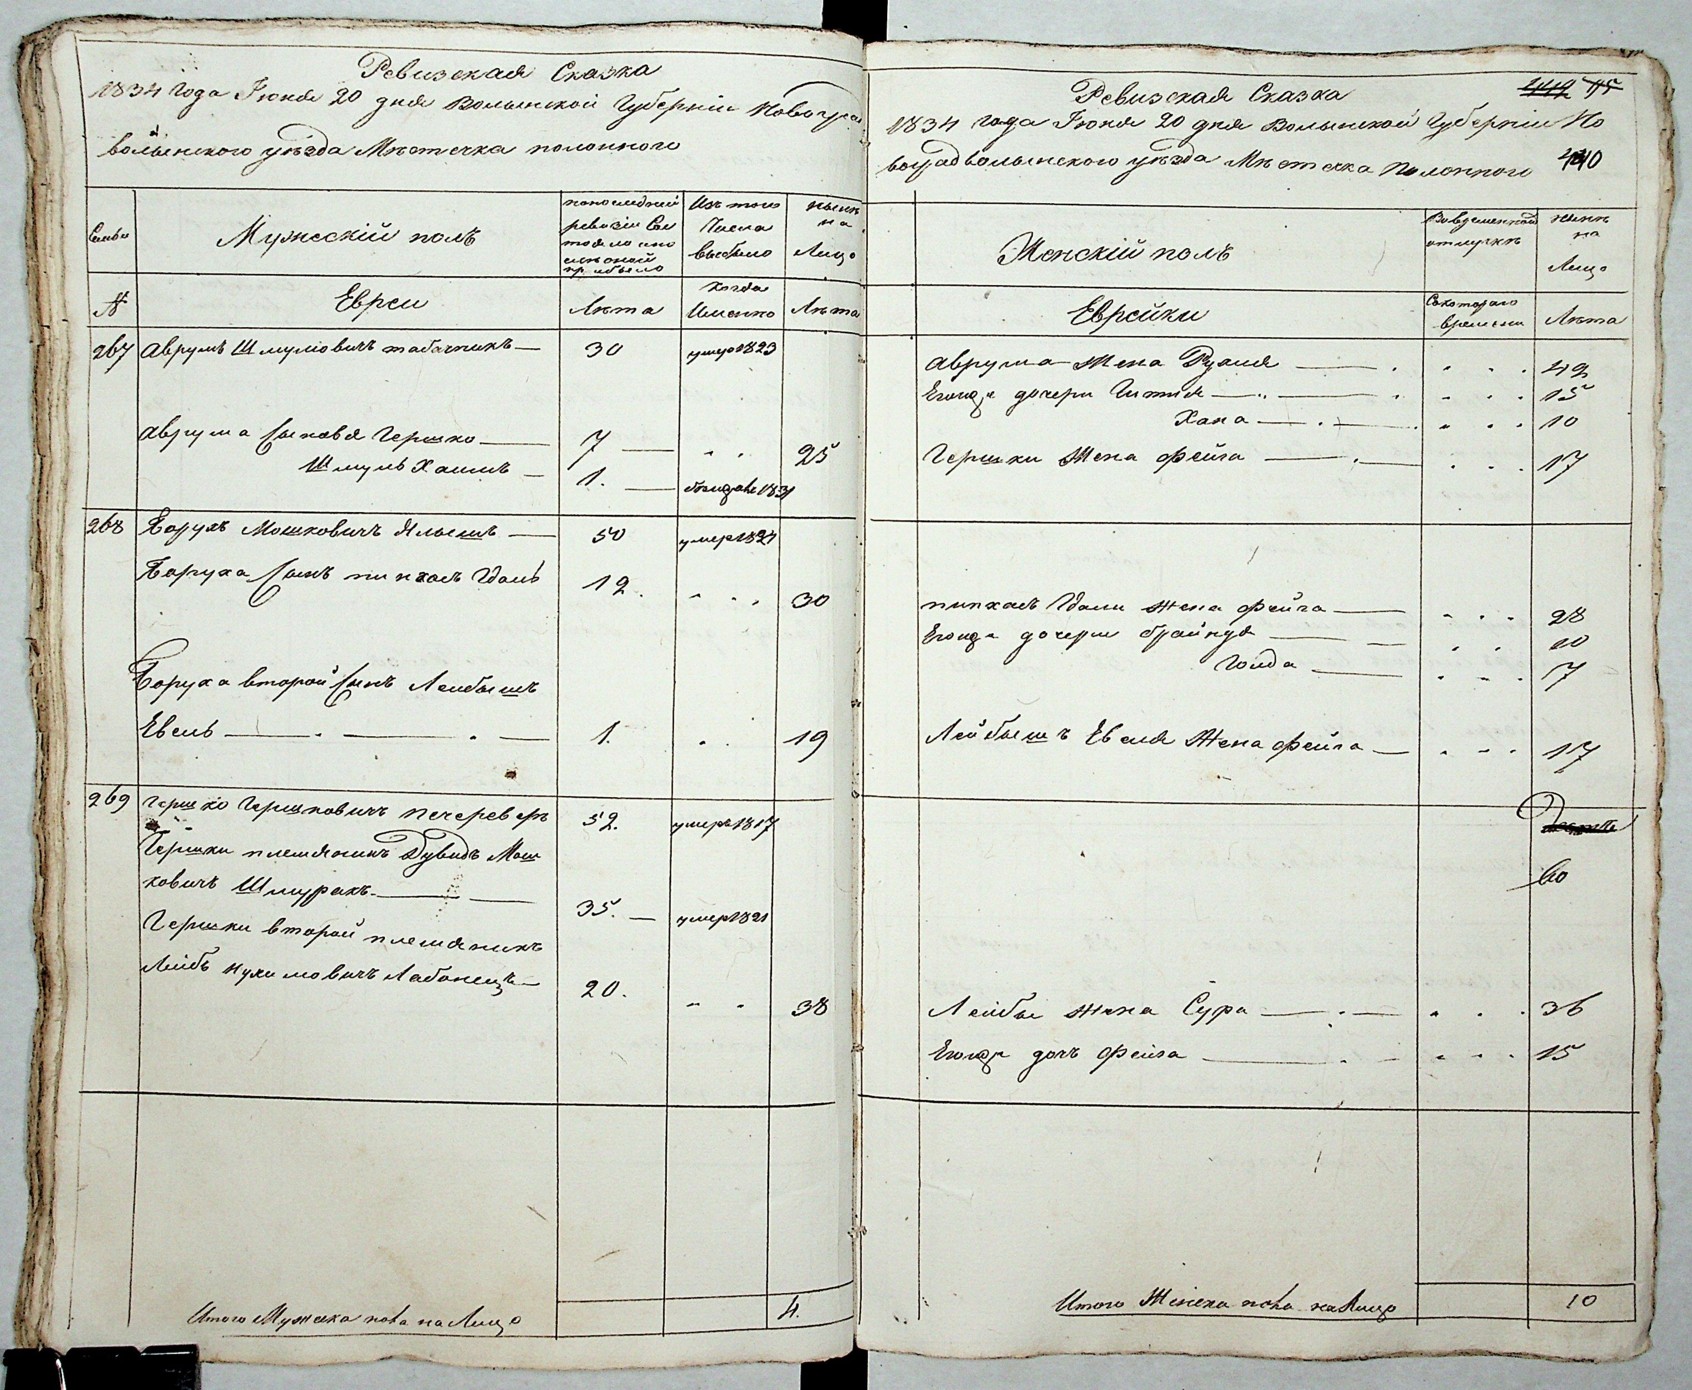 Ревизская Сказка
1834 Года Іюня 20 дня Волынской Губерніи Новогра
волынского уѣзда Мѣстечка полонного
Семьи
Мужескій полъ
попоследней ревизіи Со
стояло и по
слѣ оной
прибыло
Изъ того
Числа
выбыло
нынѣ
на
Лицо
№
Евреи
Лѣта
Когда
Именно
Лѣта
267 Аврумъ Шмуліовичъ табачникъ — 30 умер 1823
Аврума Сыновя Гершко — 7 — 25
Шмуль Хаимъ — 1. — 1831
268 Борухъ Мошковичъ — 50 умер 1827
Боруха Сынъ пинхасъ 12. 30
Боруха второй Сынъ Лейбышъ
Евель — 1. 19
269 Гершко Гершковичъ 52. умеръ 1817
Гершки племяникъ Дувидъ Мош
ковичъ Шмуракъ. — 35. — умер 1821
Гершки второй племяникъ
Лейбъ Нухимовичъ — 20. 38
Итого Мужеска пола на Лицо 4.
Ревизская Сказка
1834 года Іюня 20 дня Волынской Губерніи Но
воградволынского уѣзда Мѣстечка Полонного 440
Женскій полъ
Вовременной
отлучкѣ
нынѣ
на
Лицо
Еврейки
Скотораго
времени
Лѣта
Аврума Жена Рухля — 42
Егоже дочери Гитля — 15
Хана — 10
Гершки Жена Фейга — 17
пинхасъ Жена Фейга — 28
Егоже дочери брайндя — 10
Голда — 7
Лейбышъ Евеля Жена Фейга — 17
60
Лейбы жена Сура — 36
Егоже дочъ Фейга — 15
Итого Женска пола на Лицо 10